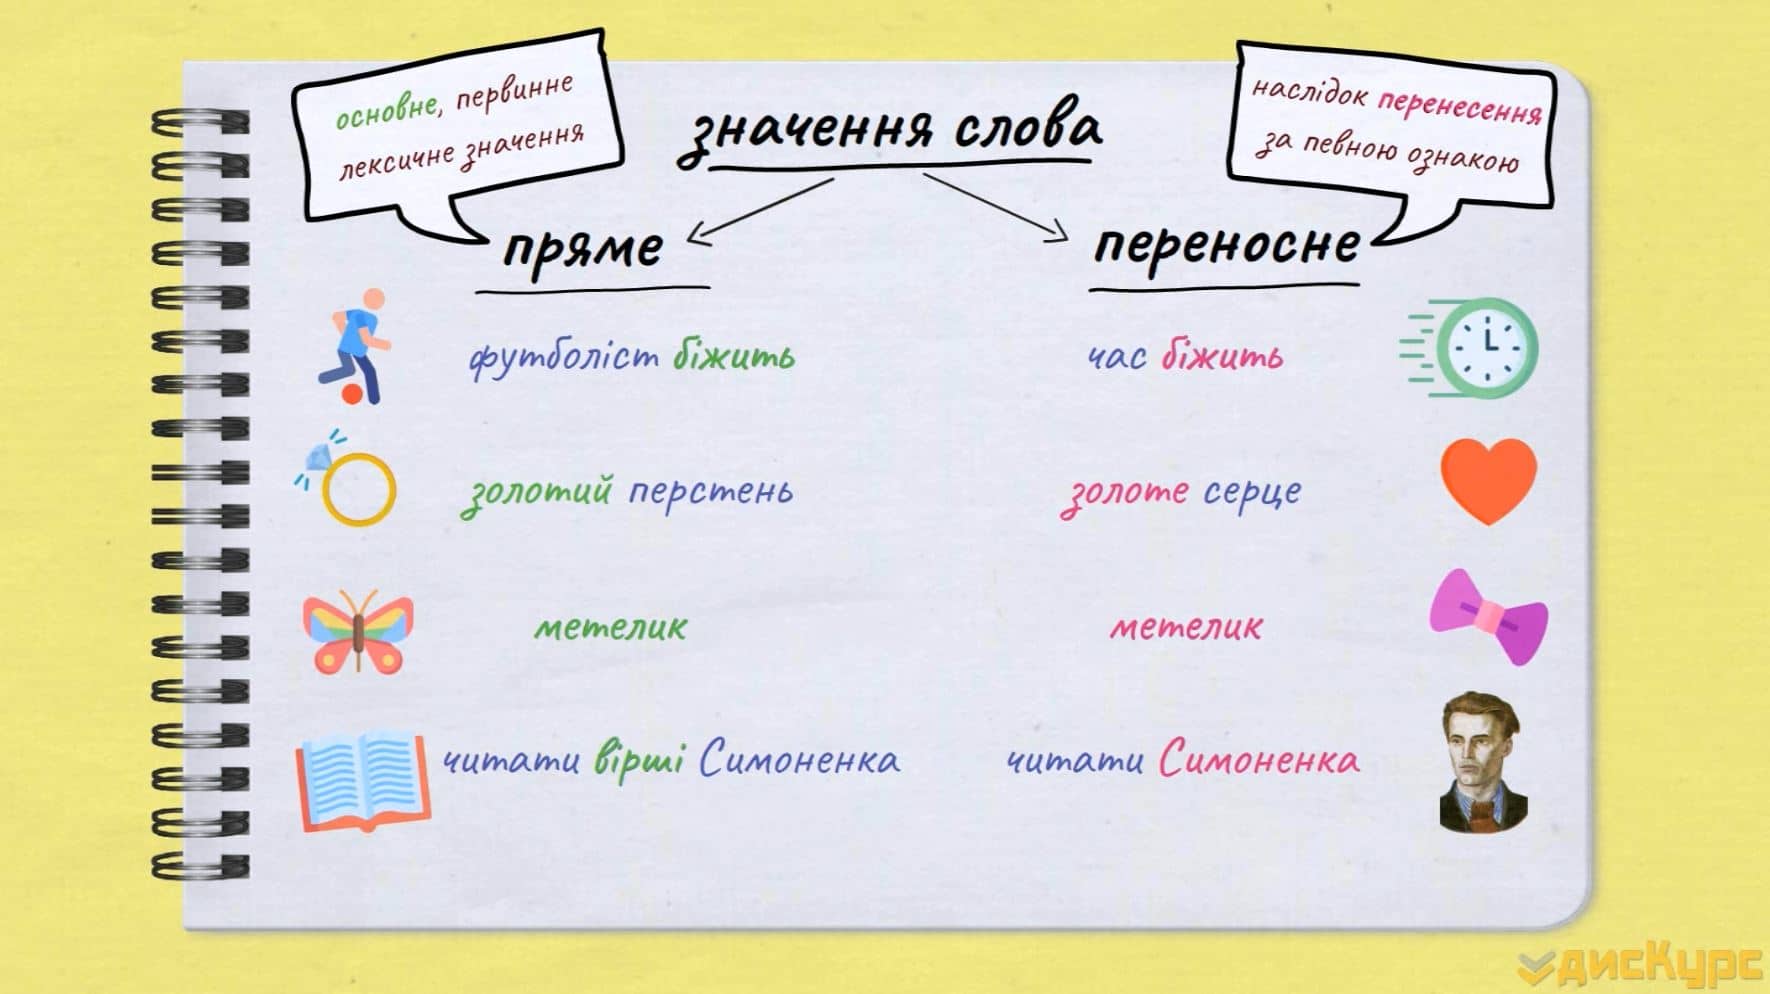 основне, первинне
лексичне значення
значення слова
наслідок перенесення
за певною ознакою
пряме
переносне
футболіст біжить
час біжить
золотий перстень
золоте серце
метелик
метелик
читати вірші Симоненка
читати Симоненка
дисКурс